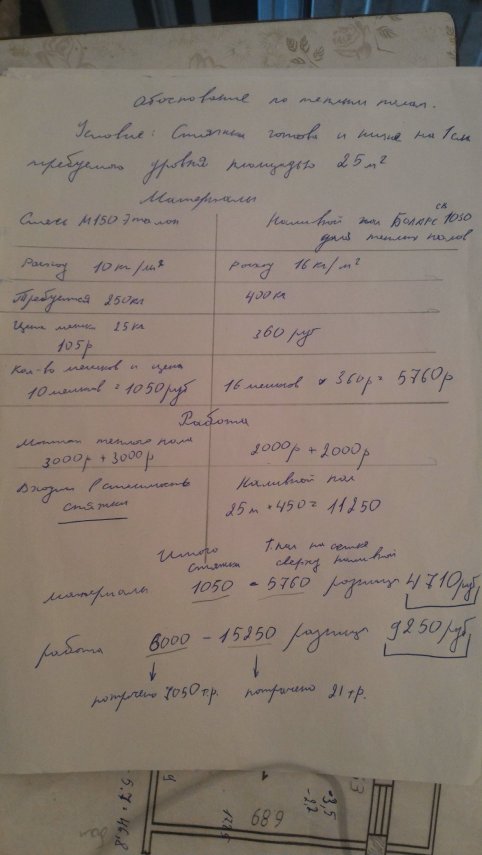 Обоснование по теплым полам.
Условие: Стяжка готова и ниже на 1см
требуемого уровня площадью 25 м²
Материалы
Смесь М150 Эталон
Наливной пол Боларс св 1050
для теплых полов
Расход 10кг/м²
Расход 16кг/м²
Требуется 250кг
400кг
Цена мешка 25кг
105р
360 руб
Кол-во мешков и цена
10 мешков = 1050 руб
16 мешков × 360р = 5760р
Работа
Монтаж теплого пола
3000р + 3000р
2000р + 2000р
Входит в стоимость
стяжки
Наливной пол
25м × 450 = 11250
Итого
стяжка
т.пол на сетке
сверху наливной
материалы 1050 - 5760 разница 4710 руб
работа 6000 - 15250 разница 9250 руб
потрачено 7050 т.р.
потрачено 21 т.р.
689
-3,5